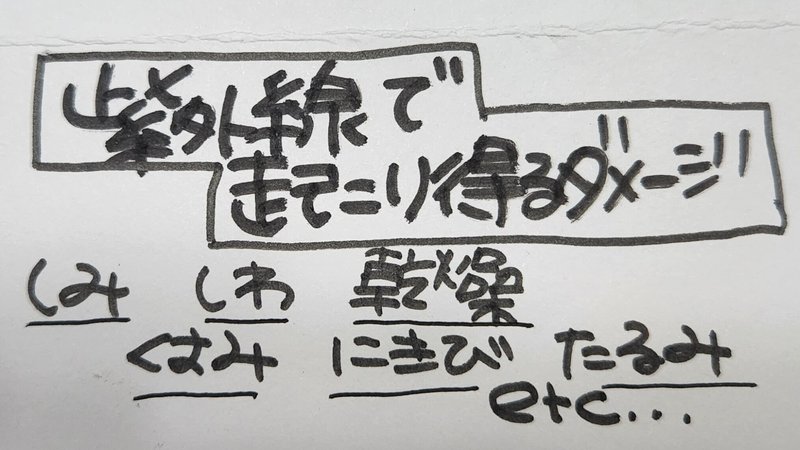 紫外線で
起こり得るダメージ
しみ しわ 乾燥
くすみ にきび たるみ
etc...